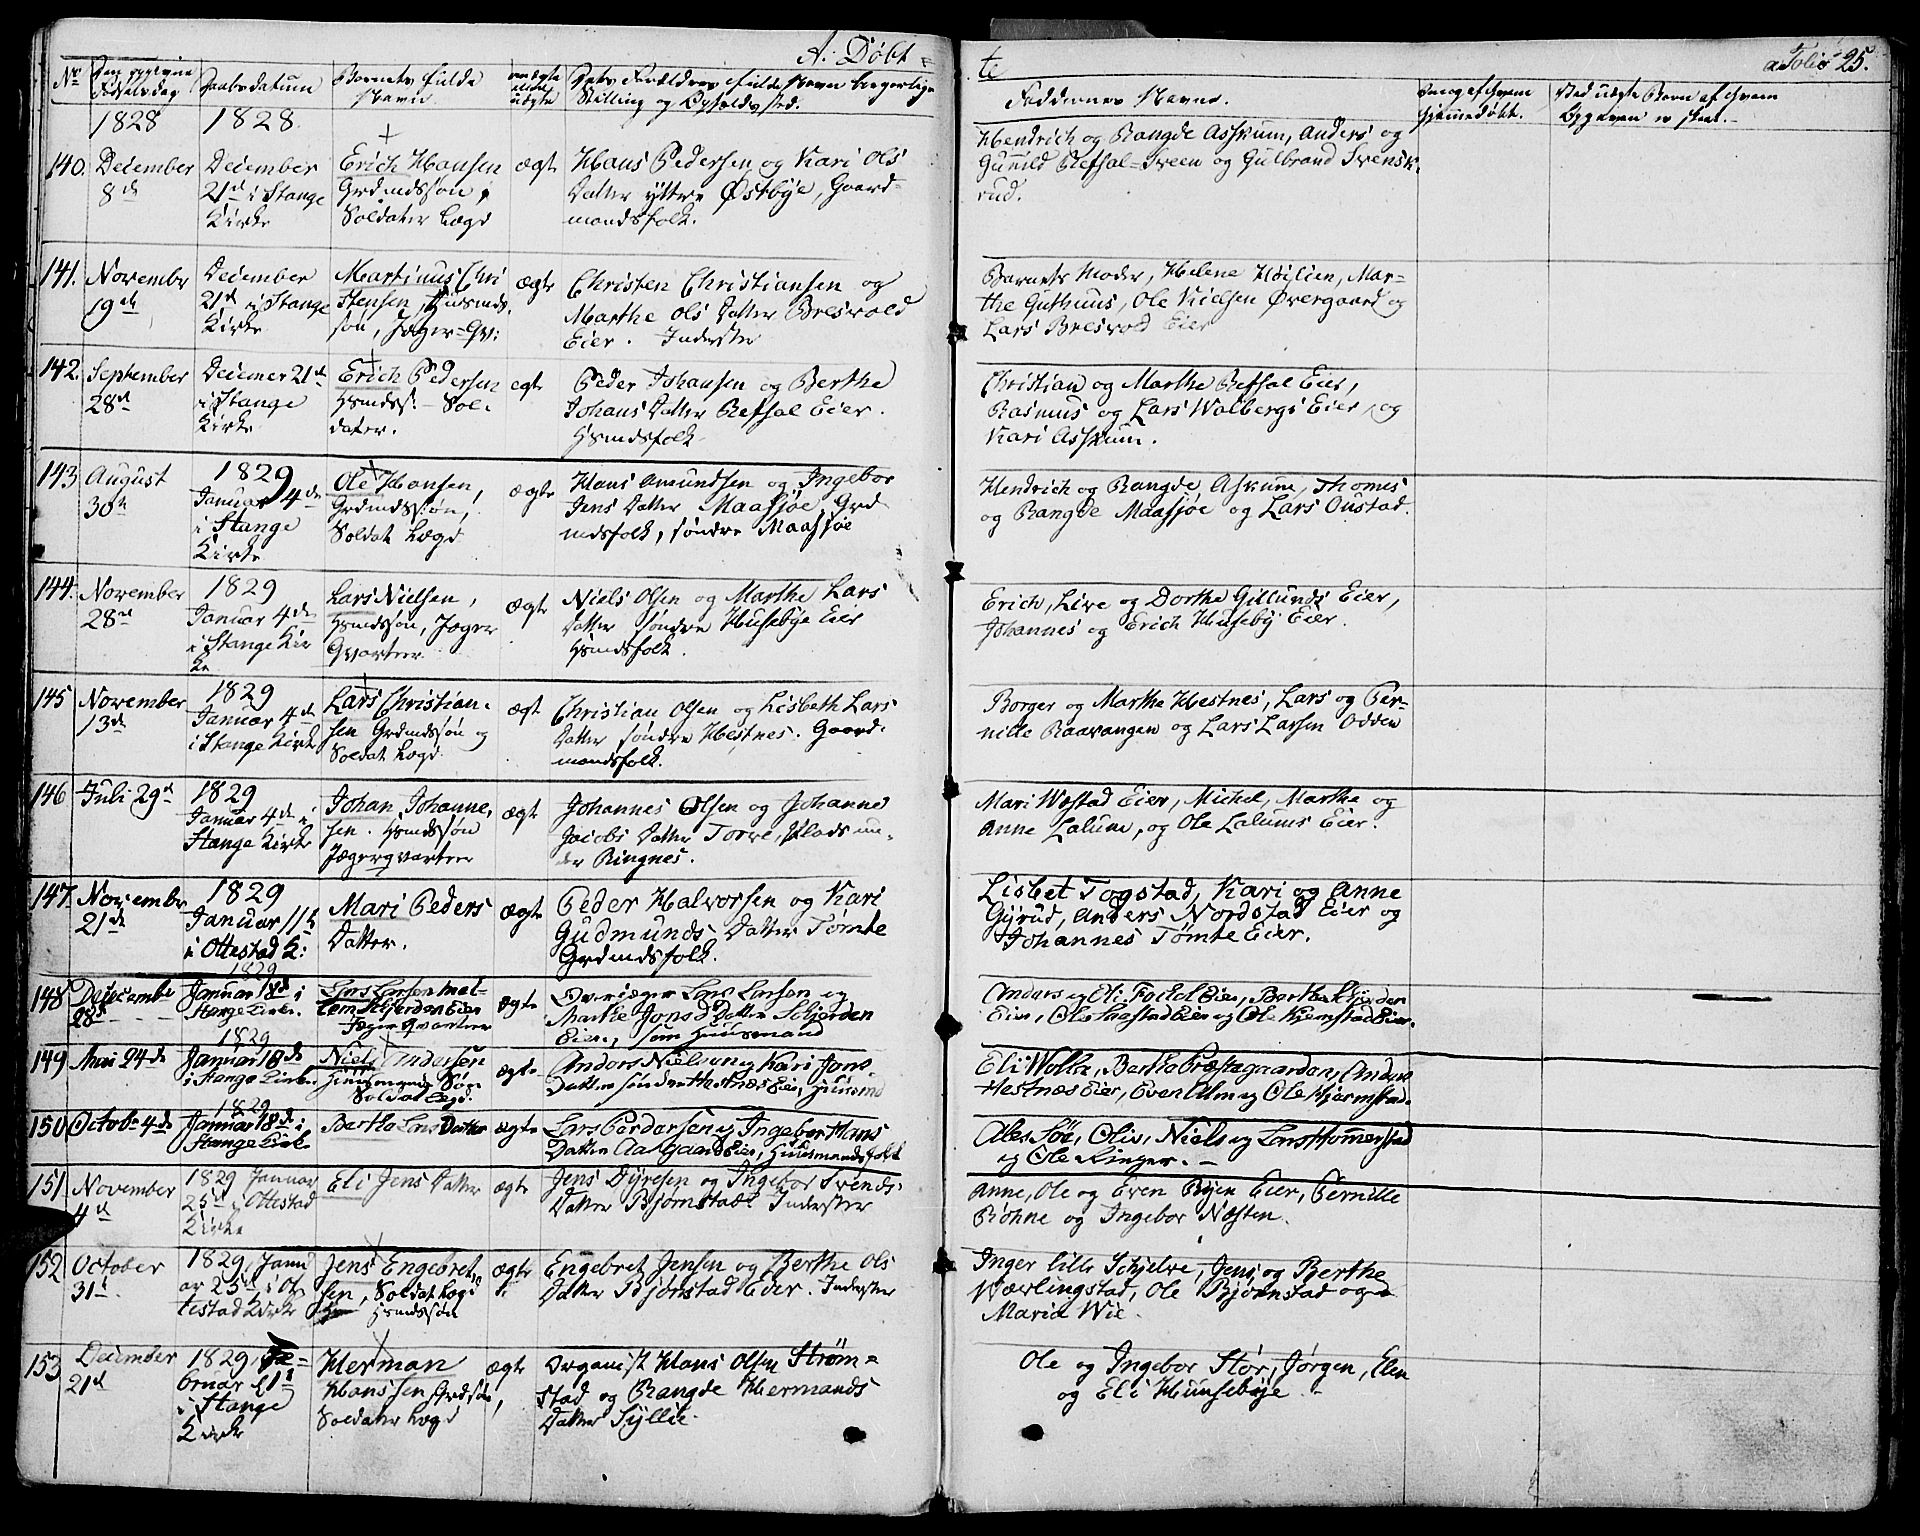 A. Døbte
a Folio 25.
No
Den opgivne Fødselsdag
Daabsdatum
Barnets fulde Navn
om ægte eller uægte
Dets Forældres fulde Navn borgerlige Stilling og Opholdssted.
Faddernes Navne.
hvem hjemmedøbt.
Ved uægte Barn af hvem Opgaven er skeet.
1828
1828
140. December 8de
December 21de i Stange Kirke
Erich Hansen Grdmdssøn, Soldater Lægd
ægte
Hans Pedersen og Kari Ols Datter yttre Østbye, Gaardmandsfolk.
Hendrich og Rangde Asskum, Anders og
Gunild Refsal-Sveen og Gulbrand Svensk-
rud.
141. November 19de
December 21de i Stange Kirke
Martinus Christensen, Huusmdssøn, Jæger-Qv:
ægte
Christen Christiansen og Marthe Ols Datter Bresvold Eier. Inderster
Barnets Moder, Helene Høilien, Mar-
the Guthuus, Ole Nielsen Øvergaard og
Lars Bresvold Eier
142. September 28de
Decemer 21de i Stange Kirke
Erich Pedersen Hsmdss: - Soldater.
ægte
Peder Johansen og Berthe Johans Datter Refsal Eier. Hsmdsfolk
Christian og Marthe Refsal Eier,
Rasmus og Lars Wolbergs Eier, og
Kari Asskum.
143 August 30te
1829 Januar 4de i Stange Kirke
Ole Hansen, Grdmdssøn, Soldat Lægd
ægte
Hans Amundsen og Ingebor Jens Datter Maasjøe, Grdmdsfolk, søndre Maasjøe
Hendrich og Rangde Askum, Thomes
og Rangde Maasjøe og Lars Oustad.
144. November 28de
1829 Januar 4de i Stange Kirke
Lars Nielsen, Hsmdssøn, Jæger Qvarteer
ægte
Niels Olsen og Marthe Lars Datter søndre Husebye Eier Hsmdsfolk.
Erich, Live og Dorthe Gillunds Eier,
Johannes og Erich Huseby Eier.
145 November 13de
1829 Januar 4de i Stange Kirke
Lars Christiansen Grdmdssøn og Soldat Lægd
ægte
Christian Olsen og Lisbeth Lars Datter søndre Hestnes. Gaardmandsfolk.
Borger og Marthe Hestnes, Lars og Per-
nille Raavangen og Lars Larsen Odden
146 Juli 29de
1829 Januar 4de i Stange Kirke
Johan Johannesen. Hsmdssøn Jægerqvarteer
ægte
Johannes Olsen og Johanne Jacobs Datter Torve, Plads under Ringnes.
Mari Westad Eier, Michel, Marthe og
Anne Lalum, og Ole Lalums Eier.
147. November 21de
1829 Januar 11te i Ottestad K:
Mari Peders Datter.
ægte
Peder Halvorsen og Kari Gudmunds Datter Tømte Grdmdsfolk.
Lisbet Togstad, Kari og Anne
Gyrud, Anders Nordstad Eier og
Johannes Tømte Eier.
148 Dececembe 28de
1829 Januar 18de i Stange Kirke.
Lars Larsen Skjerden Eier Jæger Qvarteer
ægte
Overjæger Lars Larsen og Marthe Jons Datter Skjerden Eier, som Huusmand
Anders og Eli Foekel Eier, Berthe Skjerden
Eier, Ole Eier og Ole Kjemstad Eier.
149 Mai 24de
1829 Januar 18de i Stange Kirke.
Niels Andersen Huusmands Søn Soldat Lægd.
ægte
Anders Nielsen og Kari Jons Datter søndre Hestnes Eier, Huusmd
Eli Wolla, Berthe Præstegaarden, Anders
Hestnæs Eier, Even Alm og Ole Kjernstad.
150 Octobr 4de
1829 Januar 18de i Stange Kirke.
Berthe Lars Datter
ægte
Lars Pedersen og Ingebor Hans Datter Aargaards Eier, Huusmandsfolk
Ales Søe, Oliv, Niels og Lars Hommerstad
og Ole Ringer. -
151 November 4de
1829 Januar 25de i Ottestad Kirke
Eli Jens Datter
ægte
Jens Dyresen og Ingebor Svends Datter Bjørnstad Inderster
Anne, Ole og Even Byen Eier, Pernille
Røhne og Ingebor Næsten.
152 October 31te
1829, Januar 25de i Ottestad Kirke
Jens Engebretsen, Soldat Lægd Hsmdssøn
ægte
Engebret Jensen og Berthe Ols Datter Bjørnstad Eier. Inderster
Inger lille Schjelve, Jens og Berthe
Wærlingstad, Ole Bjørnstad og
Maria Wie.
153 December 21de
1829, Februar d 1te i Stange Kirke
Herman Hanssen Grdssøn, Soldater Lægd
ægte
Organist Hans Olsen Strømstad og Rangde Hermands Datter Syllie.
Ole og Ingebor Stør, Jørgen, Elen
og Eli Huusebye.